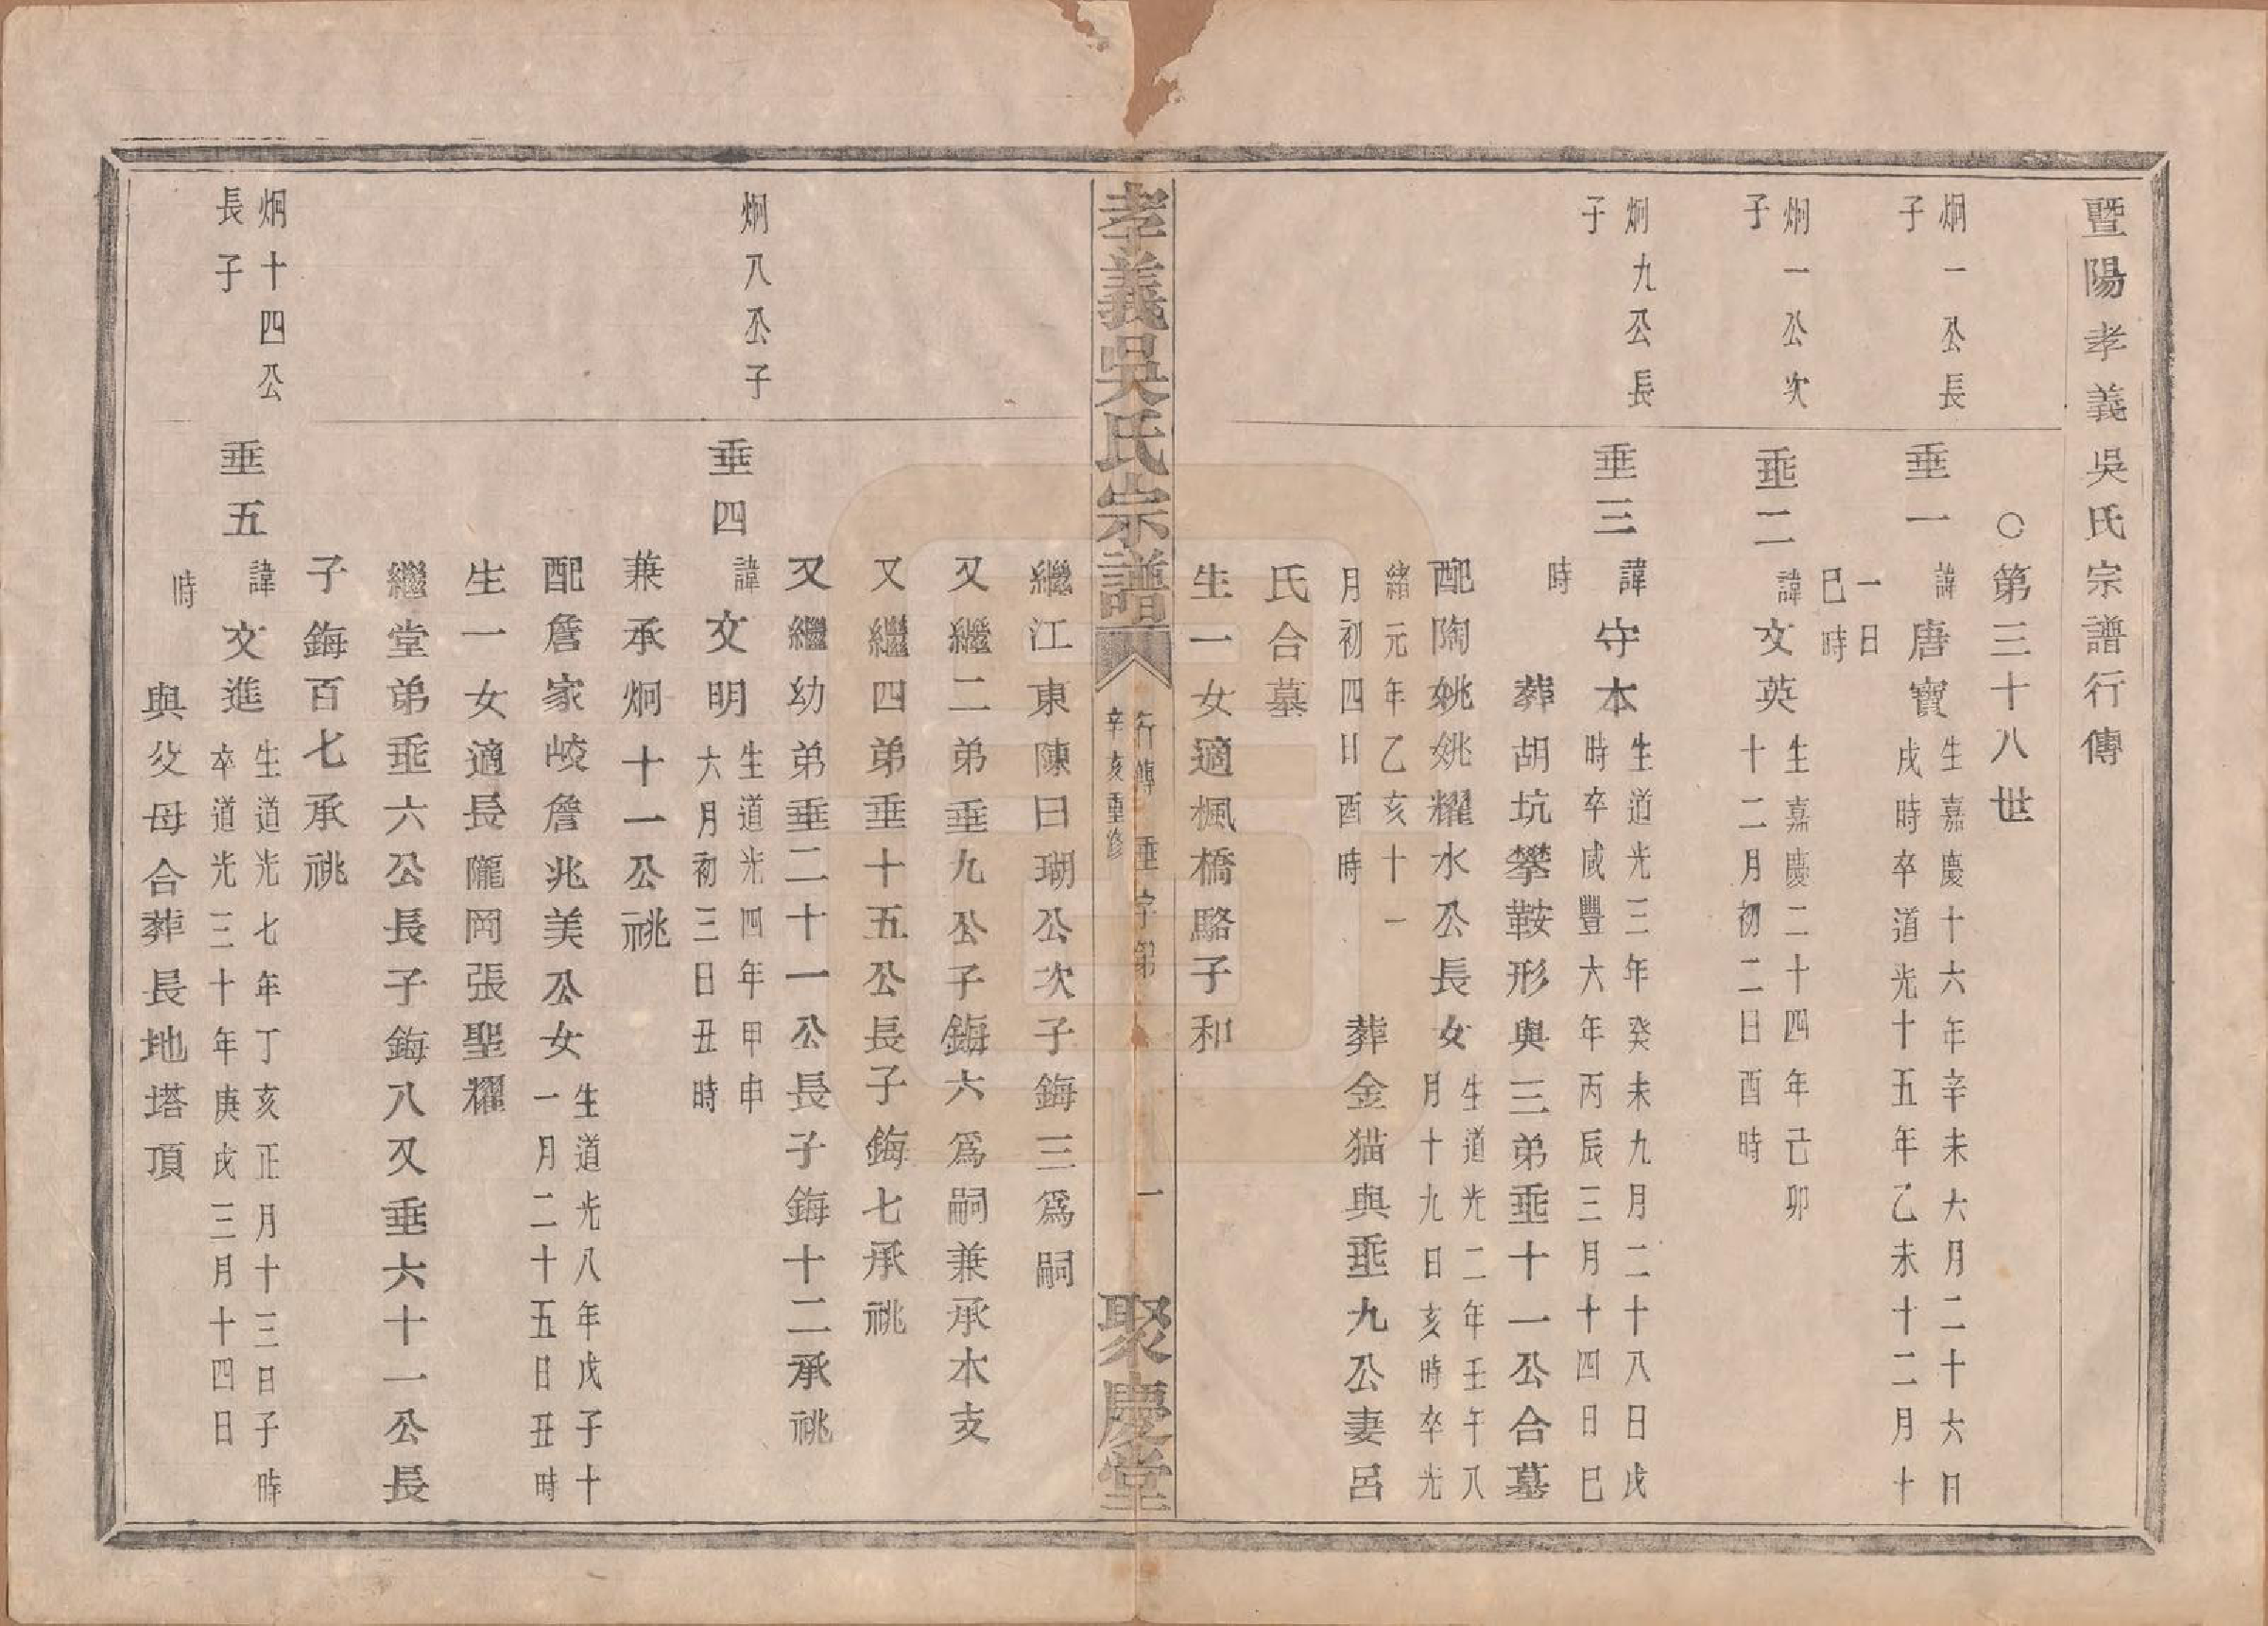 暨陽孝義吳氏宗譜行傳
○第三十八世
炯一公長
子
垂一
諱唐寶
生嘉慶十六年辛未六月二十六日
戌時卒道光十五年乙未十二月十
一日
巳時
炯一公次
子
垂二
諱文英
生嘉慶二十四年己卯
十二月初二日酉時
炯九公長
子
垂三
諱守本
生道光三年癸未九月二十八日戌
時卒咸豐六年丙辰三月十四日巳
時
葬胡坑攀鞍形與三弟垂十一公合墓
配陶姚姚耀水公長女
生道光二年壬午八
月十九日亥時卒光
緒元年乙亥十一
月初四日酉時
葬金猫與垂九公妻呂
氏合墓
生一女適楓橋駱子和
孝義吳氏宗譜
行傳 垂字第
辛亥重修
一
聚慶堂
繼江東陳曰瑚公次子鋂三爲嗣
又繼二弟垂九公子鋂六爲嗣兼承本支
又繼四弟垂十五公長子鋂七承祧
又繼幼弟垂二十一公長子鋂十二承祧
炯八公子
垂四
諱文明
生道光四年甲申
六月初三日丑時
兼承炯十一公祧
配詹家峧詹兆美公女
生道光八年戊子十
一月二十五日丑時
生一女適長隴岡張聖耀
繼堂弟垂六公長子鋂八又垂六十一公長
子鋂百七承祧
炯十四公
長子
垂五
諱文進
生道光七年丁亥正月十三日子時
卒道光三十年庚戌三月十四日
時
與父母合葬長地塔頂